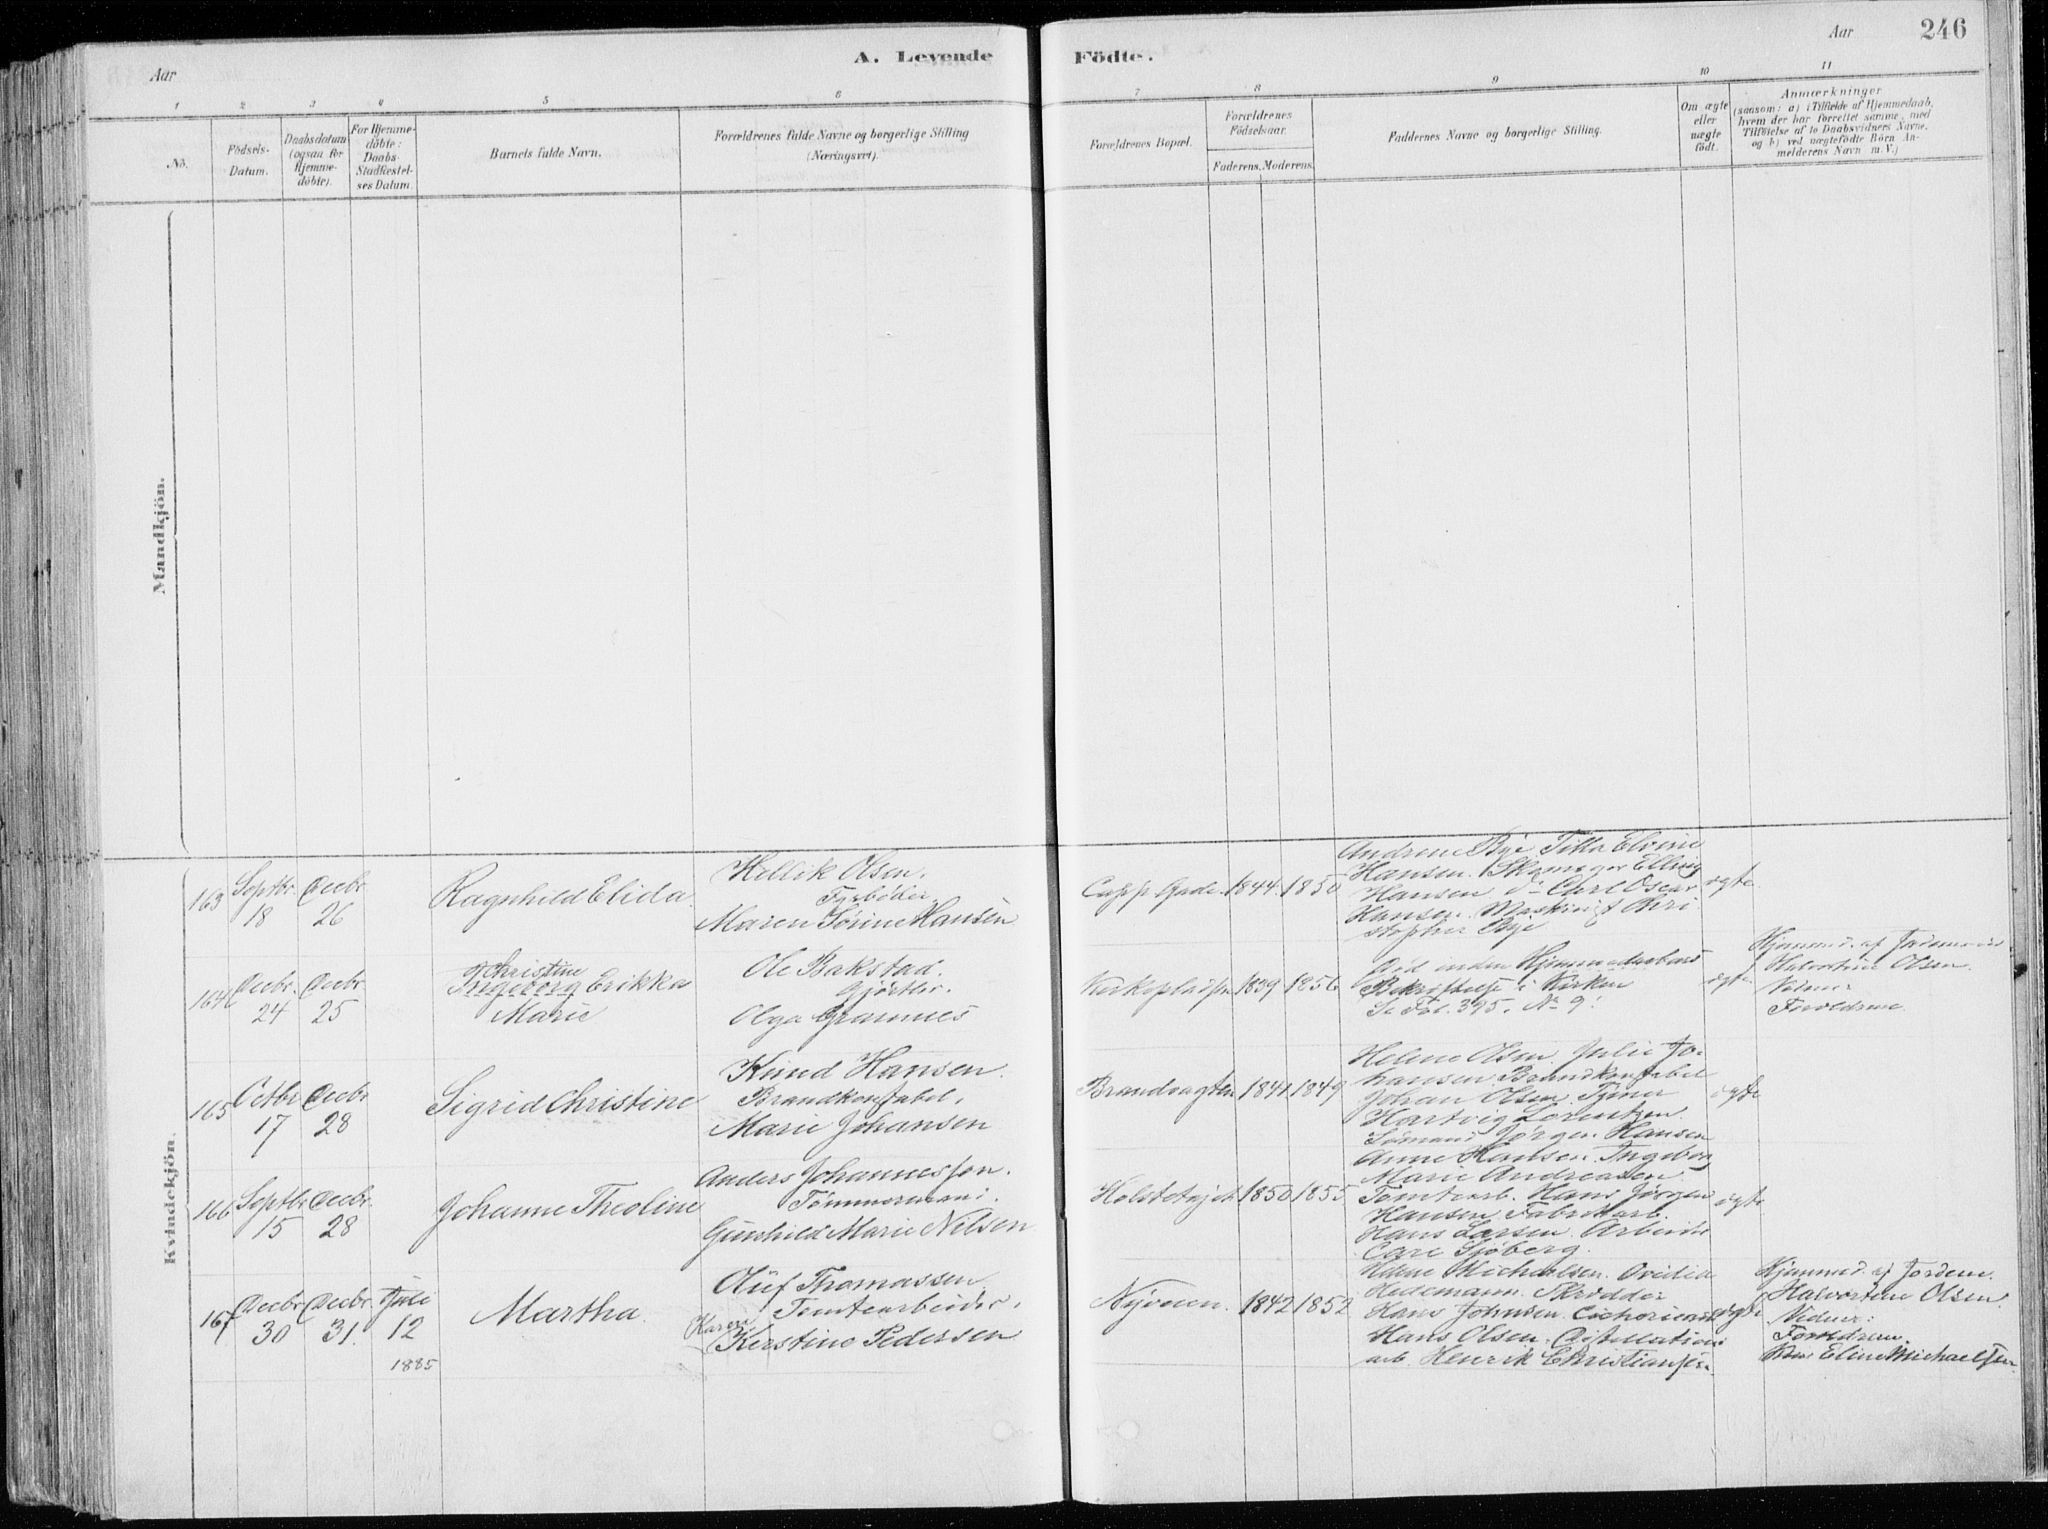 Aar
A. Levende
Födte.
Aar
246
1
2
3
4
5
6
7
8
9
10
11
No.
Födsels-
Datum.
Daabsdatum
(ogsaa for
Hjemme-
döbte).
For Hjemme-
döbte:
Daabs-
Stadfæstel-
ses Datum.
Barnets fulde Navn.
Forældrenes fulde Navne og borgerlige Stilling
(Næringsvei).
Forældrenes Bopæl.
Forældrenes
Födselsaar.
Faderens.
Moderens.
Faddernes Navne og borgerlige Stilling.
Om ægte
eller
uægte
födt.
Anmærkninger
(saasom: a) i Tilfælde af Hjemmedaab,
hvem der har forrettet samme, med
Tilföielse af to Daabsvidners Navne,
og b) ved uægtefödte Börn An-
melderens Navn m. V.)
Mandkjön.
Kvindekjön.
163
Septbr
18
Decbr
26
Ragnhild Elida
Hellik Olsen.
Fyrbøder
Maren Sørine Hansen
Gade
1844
1850
Andrine Bye
Elvine
Hansen. Skomager Elling
Hansen do Carl Oscar
Hansen. Maskinist Chri
stopher Bye
ægte
164
Decbr.
24
Decbr
25
Christine
Ingeborg Erikka
Marie
Ole Bakstad.
Gjørtler.
Olga Gramnes
1839
1856
Død inden Hjemmedaabens
Bekræftelse i Kirken
Se Fol. 395. No 9.
ægte
Hjemmed. af Jordemor
Halvordine Olsen.
Vidner
Forældrene.
165
Octbr
17
Decbr
28
Sigrid Christine
Knud Hansen.
Brandkonstabel.
Marie Johansen
Brandvagten
1841
1849
Helene Olsen. Julie Jo-
hansen. Brandkonstabel
Johan Olsen. Tjener
Hartvig Lorentzen
Sømand Jørgen Hansen
ægte
166
Septbr
15
Decbr.
28
Johanne Theoline
Anders Johannessen.
Tømmermand.
Gunhild Marie Nilsen
1850
1855
Anne Hansen. Ingeborg
Marie Andreasen.
Tomtearb. Hans Jørgen
Hansen. Fabrikarb.
Hans Larsen. Arbeider
Carl Sjöberg.
ægte
167
Decbr.
30
Decbr.
31.
Juli
12
1885
Martha.
Oluf Thomassen.
Tomtearbeider.
Karen
Kirstine Pedersen
Nyveien.
1842
1852
Michaelsen. Ovidia
Hedemann. Skrædder
Hans Johnsen. Cichoriearb
Hans Olsen. Distellations
arb. Henrik Christiansen.
ægte
Hjemmed. af Jordem.
Halvordine Olsen.
Vidner:
Forældrene.
Eline Michaelsen